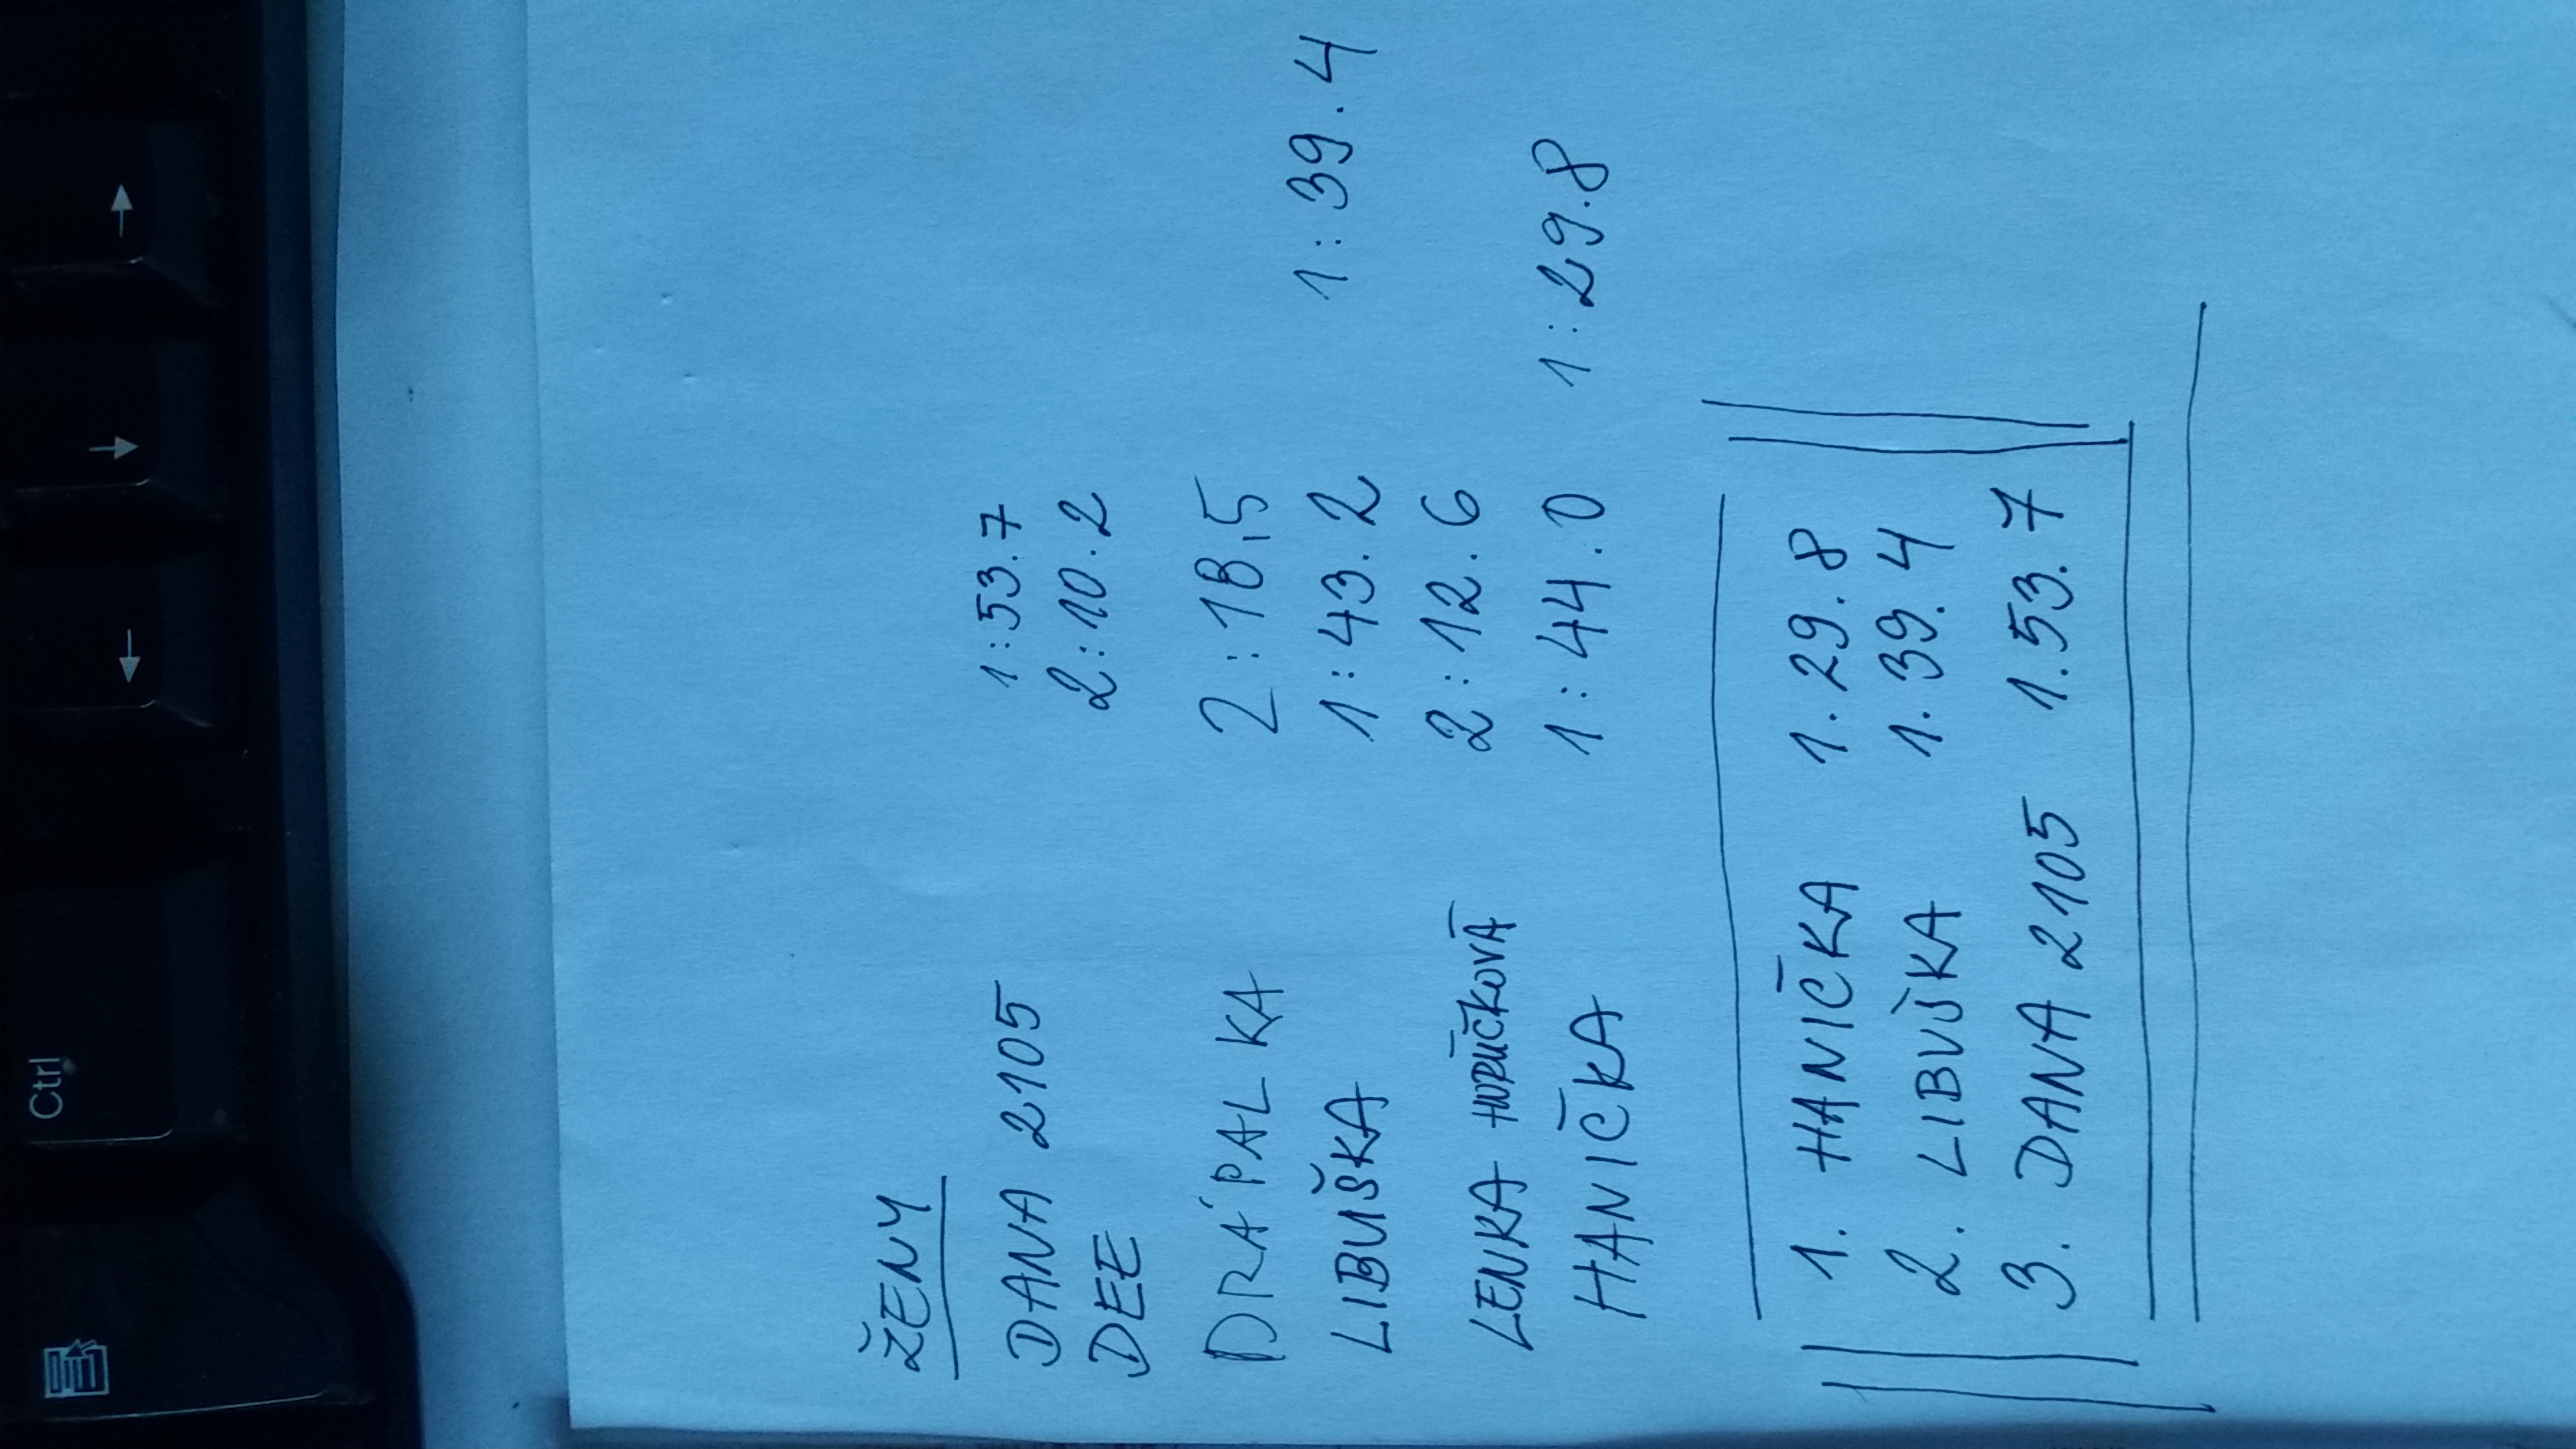 Ctrl
ŽENY
DANA 2105 1:53.7
DEE 2:10.2
DRÁPALKA 2:18,5
LIBUŠKA 1:43.2 1:39.4
LENKA 2:12.6
HANIČKA 1:44.0 1:29.8
1. HANIČKA 1.29.8
2. LIBUŠKA 1.39.4
3. DANA 2105 1.53.7